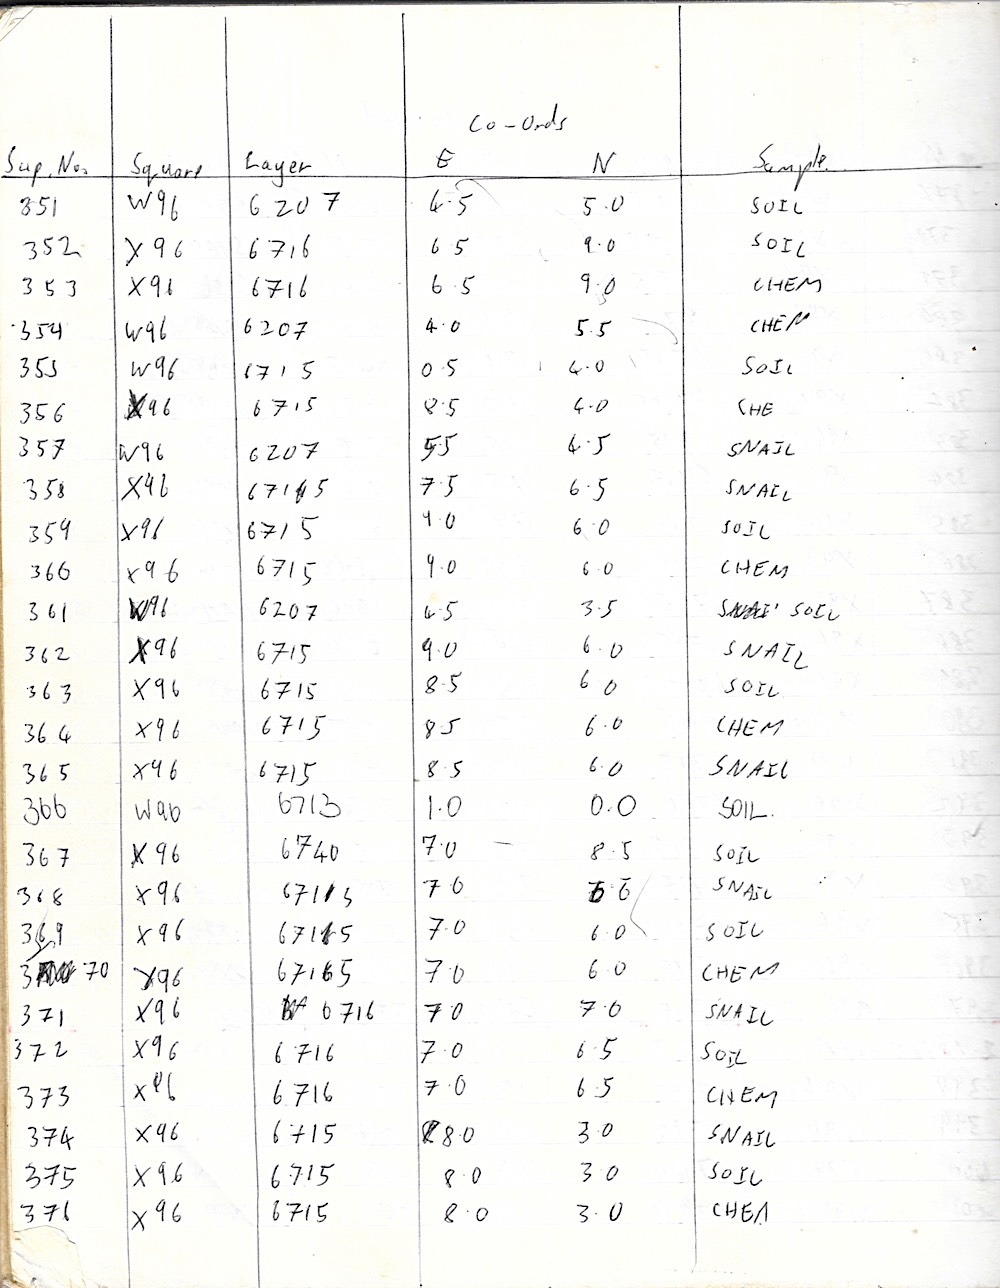 Co-Ords
Sup. Nos Square Layer E N Sample
351 W96 6207 4.5 5.0 SOIL
352 X96 6716 6 5 9.0 SOIL
353 X96 6716 6.5 9.0 CHEM
354 W96 6207 4.0 5.5 CHEM
355 W96 6715 0.5 4.0 SOIL
356 X96 6715 8.5 4.0 CHE
357 W96 6207 5.5 4.5 SNAIL
358 X96 6715 7.5 6.5 SNAIL
359 X96 6715 9.0 6.0 SOIL
360 X96 6715 9.0 6.0 CHEM
361 W96 6207 4.5 3.5 SOIL
362 X96 6715 9.0 6.0 SNAIL
363 X96 6715 8.5 6 0 SOIL
364 X96 6715 8.5 6.0 CHEM
365 X96 6715 8.5 6.0 SNAIL
366 W96 6713 1.0 0.0 SOIL.
367 X96 6740 7.0 8.5 SOIL
368 X96 6715 7 0 SNAIL
369 X96 6715 7.0 6.0 SOIL
370 X96 6715 7.0 6.0 CHEM
371 X96 6716 7.0 7.0 SNAIL
372 X96 6716 7.0 6.5 SOIL
373 X96 6716 7.0 6.5 CHEM
374 X96 6715 8.0 3.0 SNAIL
375 X96 6715 8.0 3 0 SOIL
376 X96 6715 8.0 3.0 CHEM